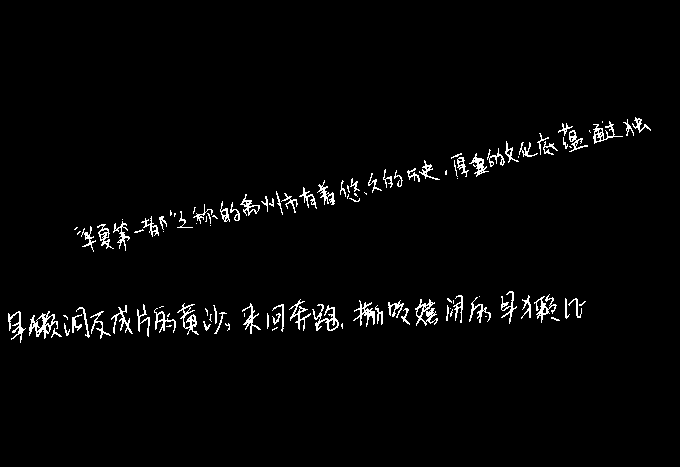 “华夏第一都”之称的禹州市有着悠久的历史,厚重的文化底蕴通过独
旱獭洞及成片的黄沙,来回奔跑,撕咬嬉闹的旱獭比